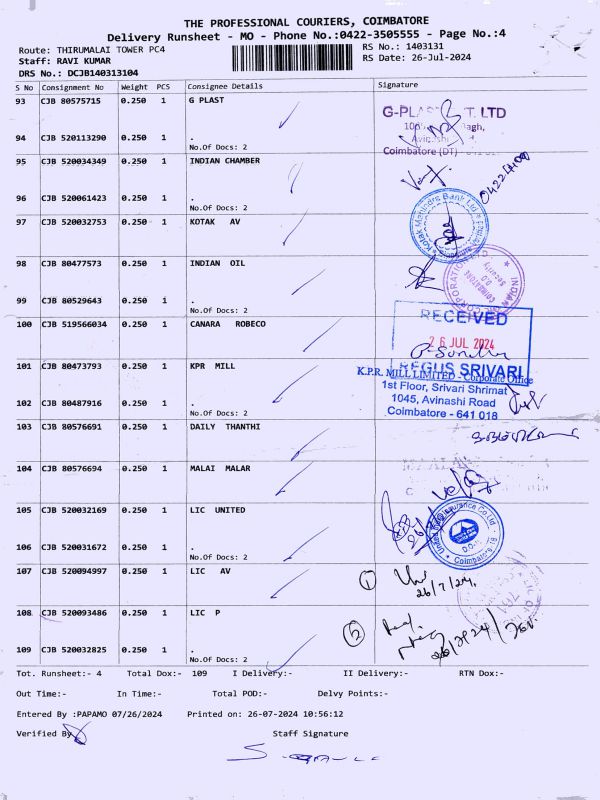 THE PROFESSIONAL COURIERS, COIMBATORE
Delivery Runsheet - MO - Phone No.:0422-3505555 - Page No.:4
Route: THIRUMALAI TOWER PC4 RS No.: 1403131
Staff: RAVI KUMAR RS Date: 26-Jul-2024
DRS No.: DCJB140313104
S No Consignment No Weight PCS Consignee Details Signature
93 CJB 80575715 0.250 1 G PLAST
G-PLAST PVT. LTD
94 CJB 520113290 0.250 1 .
Coimbatore (DT)
No.Of Docs: 2
95 CJB 520034349 0.250 1 INDIAN CHAMBER
96 CJB 520061423 0.250 1 .
No.Of Docs: 2
97 CJB 520032753 0.250 1 KOTAK AV
Kotak Mahindra Bank Ltd
98 CJB 80477573 0.250 1 INDIAN OIL
99 CJB 80529643 0.250 1 .
No.Of Docs: 2
100 CJB 519566034 0.250 1 CANARA ROBECO
RECEIVED
26 JUL 2024
REGUS SRIVARI
101 CJB 80473793 0.250 1 KPR MILL
K.P.R. MILL LIMITED - Corporate Office
1st Floor, Srivari Shrimat
1045, Avinashi Road
Coimbatore - 641 018
102 CJB 80487916 0.250 1 .
No.Of Docs: 2
103 CJB 80576691 0.250 1 DAILY THANTHI
104 CJB 80576694 0.250 1 MALAI MALAR
105 CJB 520032169 0.250 1 LIC UNITED
United India Insurance Co.Ltd
Coimbatore.18
106 CJB 520031672 0.250 1 .
No.Of Docs: 2
107 CJB 520094997 0.250 1 LIC AV
1 26/7/24
108 CJB 520093486 0.250 1 LIC P
2
109 CJB 520032825 0.250 1 .
No.Of Docs: 2
Tot. Runsheet:- 4 Total Dox:- 109 I Delivery:- II Delivery:- RTN Dox:-
Out Time:- In Time:- Total POD:- Delvy Points:-
Entered By :PAPAMO 07/26/2024 Printed on: 26-07-2024 10:56:12
Verified By Staff Signature